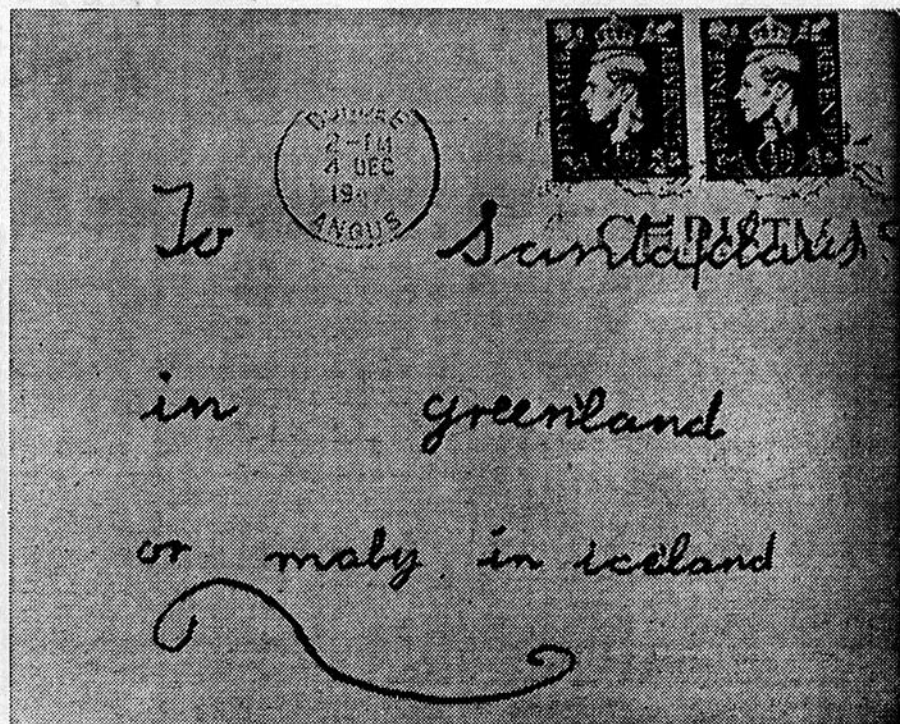 POSTAGE REVENUE POSTAGE REVENUE
2 - PM
4 DEC
ANGUS
To Santaclaus
in greenland
or maby in iceland